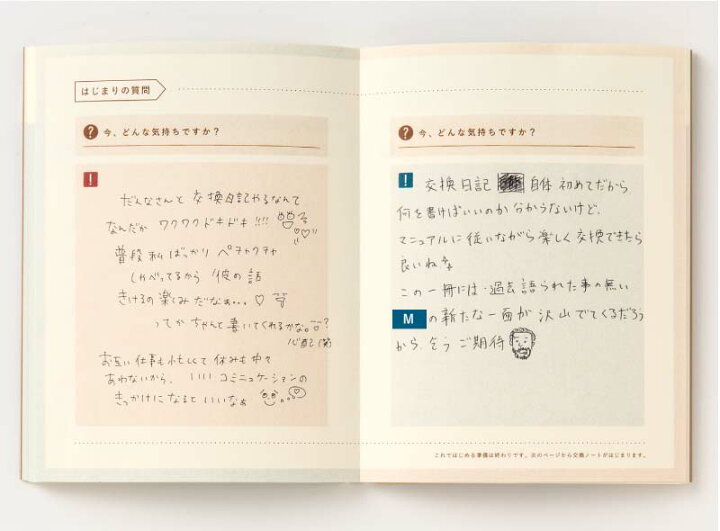 はじまりの質問
? 今、どんな気持ちですか?
!
だんなさんと 交換日記やるなんて
なんだか ワクワクドキドキ!!!
普段私ばっかり ペチャクチャ
しゃべってるから 彼の話
きけるの楽しみだなぁ...♡
ってか ちゃんと書いてくれるかな。?
心配(笑)
お互い仕事も忙しくて 休みも中々
あわないから、 いいコミニュケーションの
きっかけになるといいなぁ
? 今、どんな気持ちですか?
!
交換日記 自体 初めてだから
何を書けばいいのか分からないけど、
マニュアルに従いながら楽しく交換できたら
良いね
この一冊には・過去語られた事の無い
M の新たな一面が 沢山でてくるだろう
から、乞うご期待
これではじめる準備は終わりです。次のページから交換ノートがはじまります。